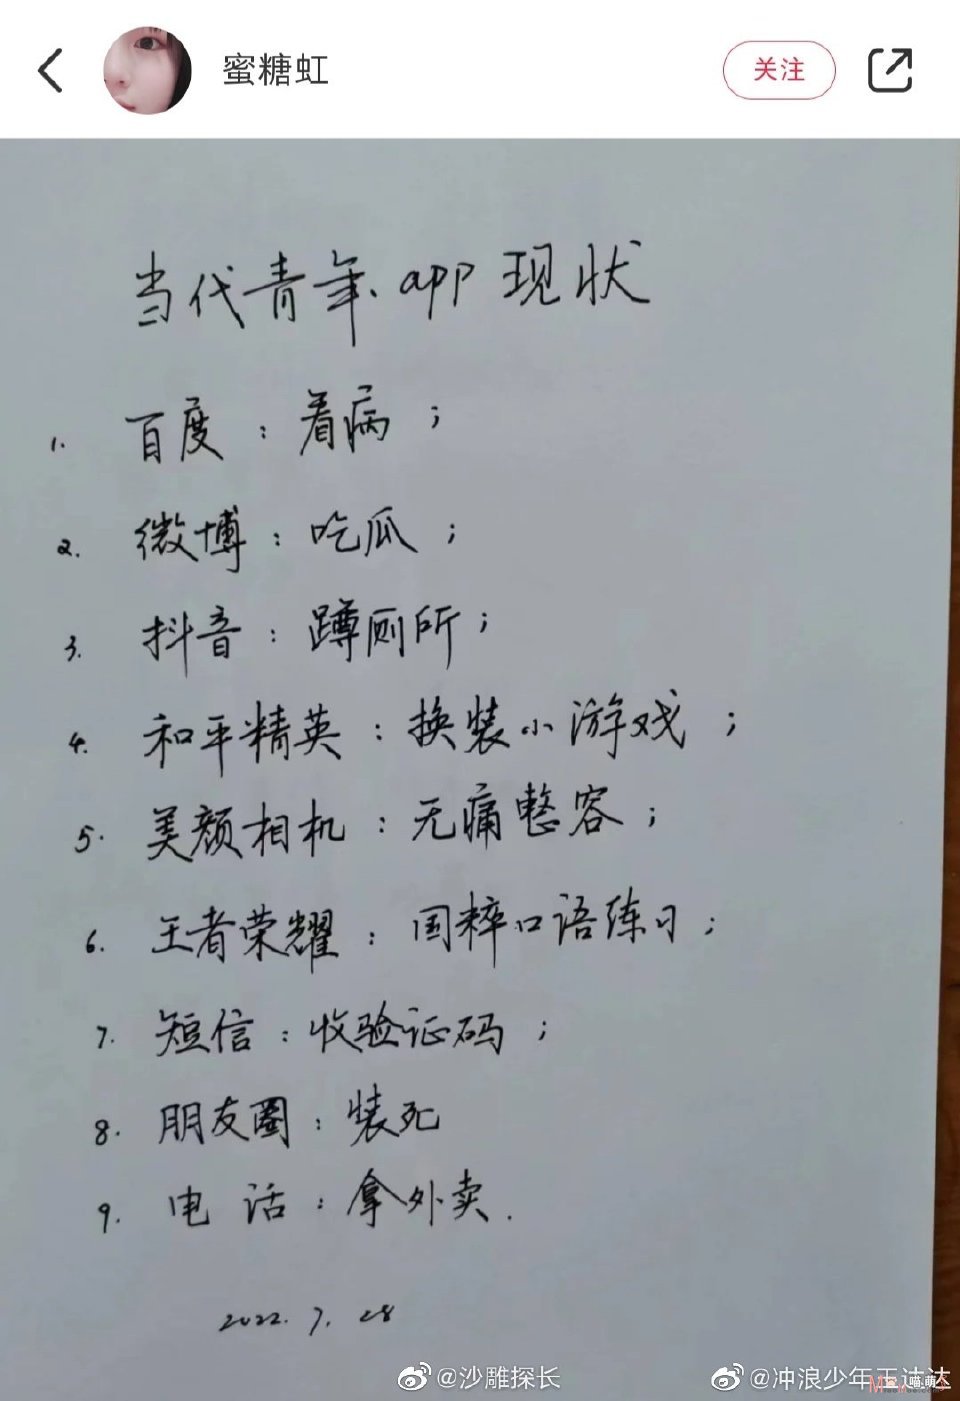 蜜糖虹
关注
当代青年app现状
1. 百度：看病；
2. 微博：吃瓜；
3. 抖音：蹲厕所；
4. 和平精英：换装小游戏；
5. 美颜相机：无痛整容；
6. 王者荣耀：国粹口语练习；
7. 短信：收验证码；
8. 朋友圈：装死
9. 电话：拿外卖.
2022.7.28
@沙雕探长
@冲浪少年王达达